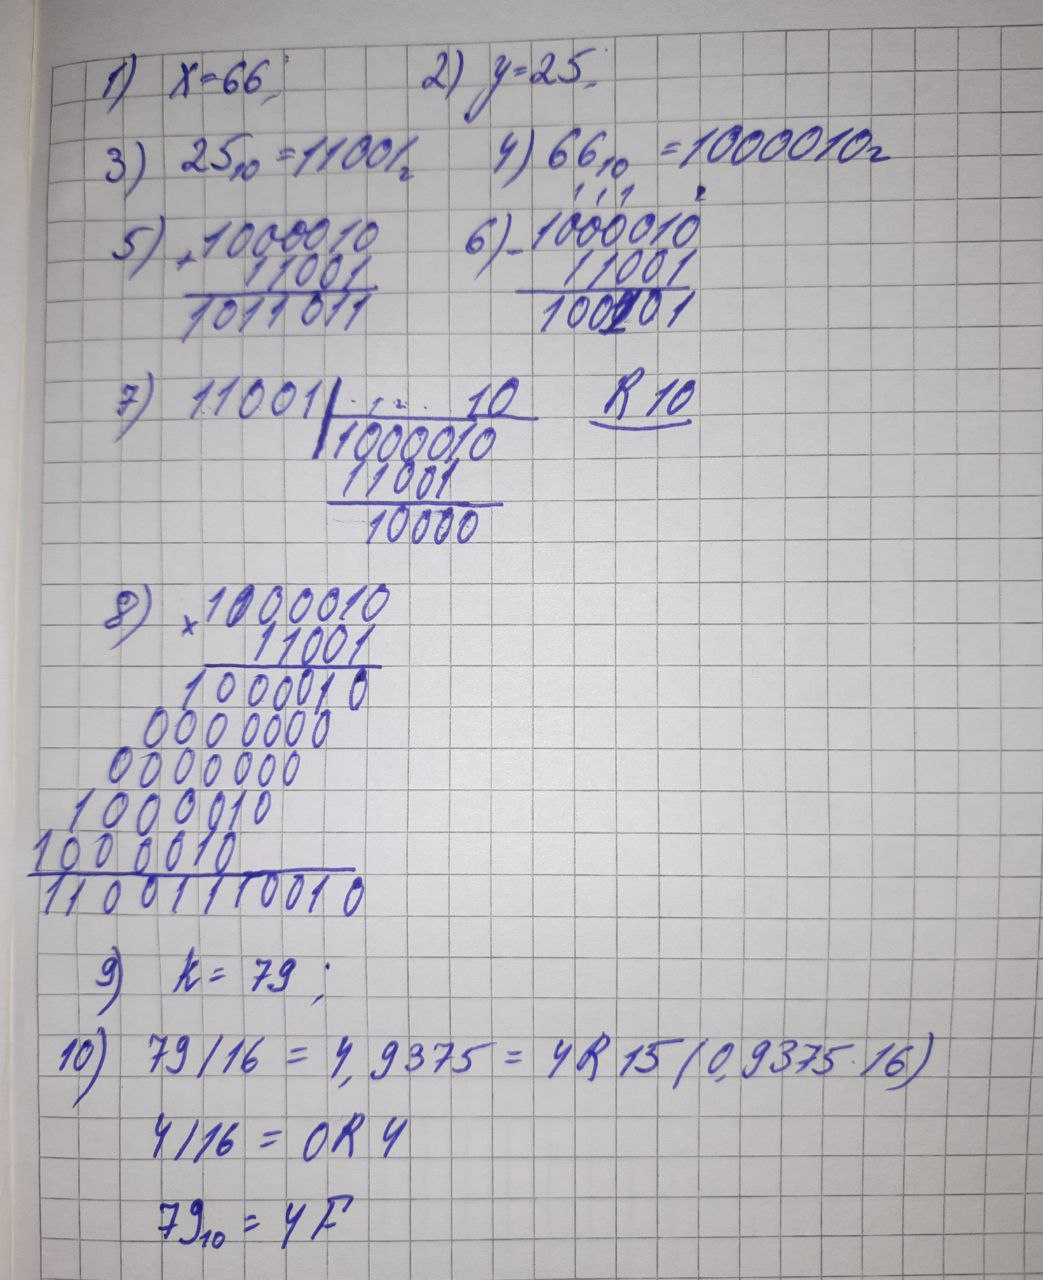 1) x=66;    2) y=25;
3) 25₁₀ =11001₂    4) 66₁₀ =1000010₂
5) +1000010    6) -1000010
11001    11001
1011011    101001
7) 11001 10    R 10
1000010
11001
10000
8) x 1000010
11001
1000010
0000000
0000000
1000010
1000010
11001110010
9) k = 79;
10) 79/16 = 4,9375 = 4R 15 (0,9375·16)
4/16 = 0R 4
79₁₀ = 4F